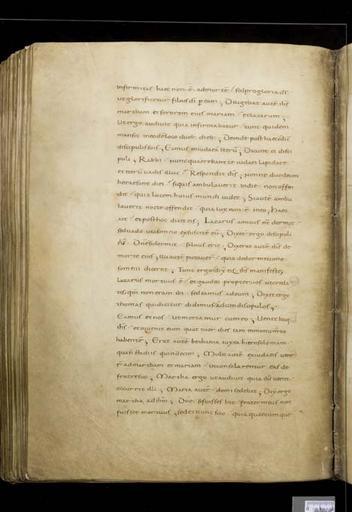 infirmitas haec non ē admortē sed pro gloria dī
ut glorificetur filius dī p eum; Diligebat autē ihs
martham et sororem eius mariam et lazarum
ut ergo audiuit quia infirmabatur tunc quidem
mansit in eodē loco duob; dieb; Deinde post haec dicit
discipulis suis; Eamus in iudaeā iterū; Dicunt ei disci
puli; Rabbi nunc quaerebant te iudaei lapidare
et iterū uadis illuc Respondit ihs; nonne duodecim
horae sunt diei si quis ambulauerit in die non offen
dit quia lucem huius mundi uidet; Si autē ambu
lauerit nocte offendit quia lux non ē in eo; Haec
ait et post hoc dicit eis; Lazarus amicus nr̄ dormit
sed uado ut a somno exsuscitē eū; Dixer ergo discipuli
ei Dn̄e si dormit saluus erit; Dixerat autē ihs de
morte eius illi autē putauer quia de dormitione
somni diceret; Tunc ergo dixit eis ihs manifeste;
lazarus mortuus ē et gaudeo propter uos ut creda
tis qm̄ non eram ibi sed eamus ad eum; Dixit ergo
thomas qui dicitur didimus ad condiscipulos;
Eamus et nos ut moriamur cum eo; Venit itaq;
ihs et inuenit eum quattuor dies iam in monumento
habentē; Erat autē bethania iuxta hierosolimam
quasi stadiis quindecim; Multi autē ex iudaeis uener
ad martham et mariam ut consolarentur eas de
fratre suo; Martha ergo ut audiuit quia ihs uenit
occurrit illi; Maria autē domi sedebat; Dixit ergo
martha ad ihm; Dn̄e si fuisses hic frater meus non
fuisset mortuus; sed et nunc scio quia quaecumque